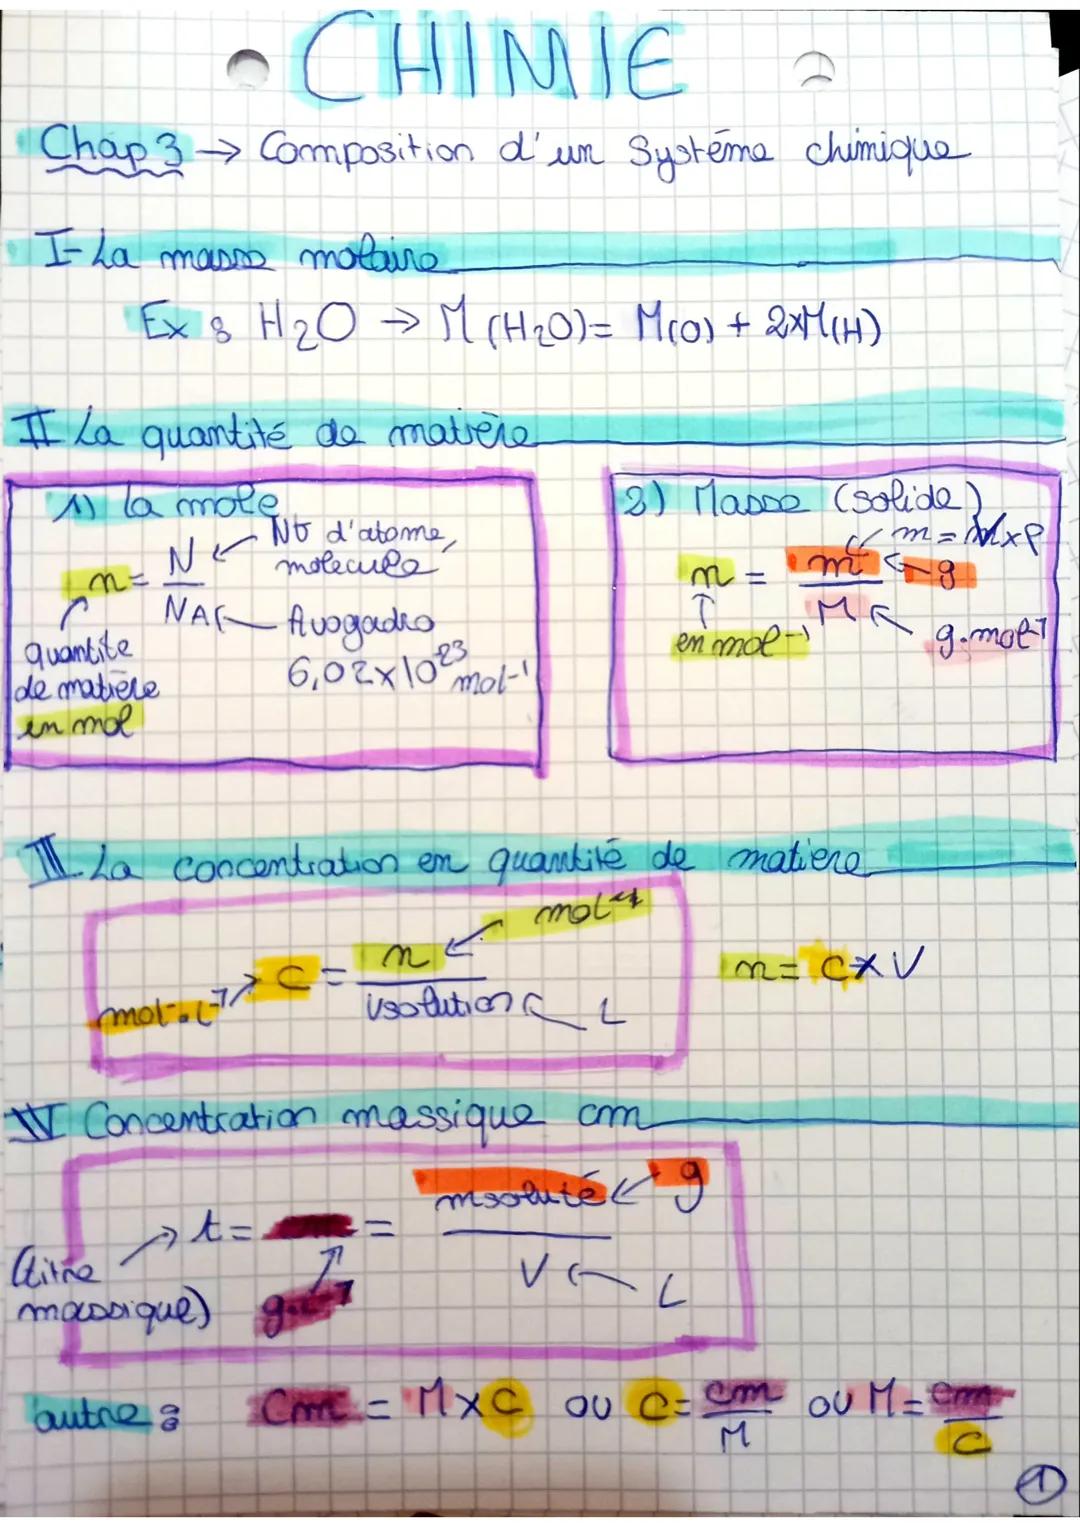 CHIMIE
Chap 3 → Composition d'un Système chimique
I- La masse molaire
Ex : H2O → M(H2O) = M(O) + 2xM(H)
II La quantité de matière
1) La mole
n = N / NA
Nb d'atome, molécule
Avogadro
6,02x10^23 mol-1
quantité
de matière
en mol
2) Masse (solide)
n = m / M
g
en mol-1
g.mol-1
III La concentration en quantité de matière
C = n / Vsolution
mol.L-1
L
n = C x V
IV Concentration massique cm
t = cm = msoluté / V
g
L
(titre
massique)
g.L-1
autre : Cm = M x C ou C = cm / M ou M = cm / C
1